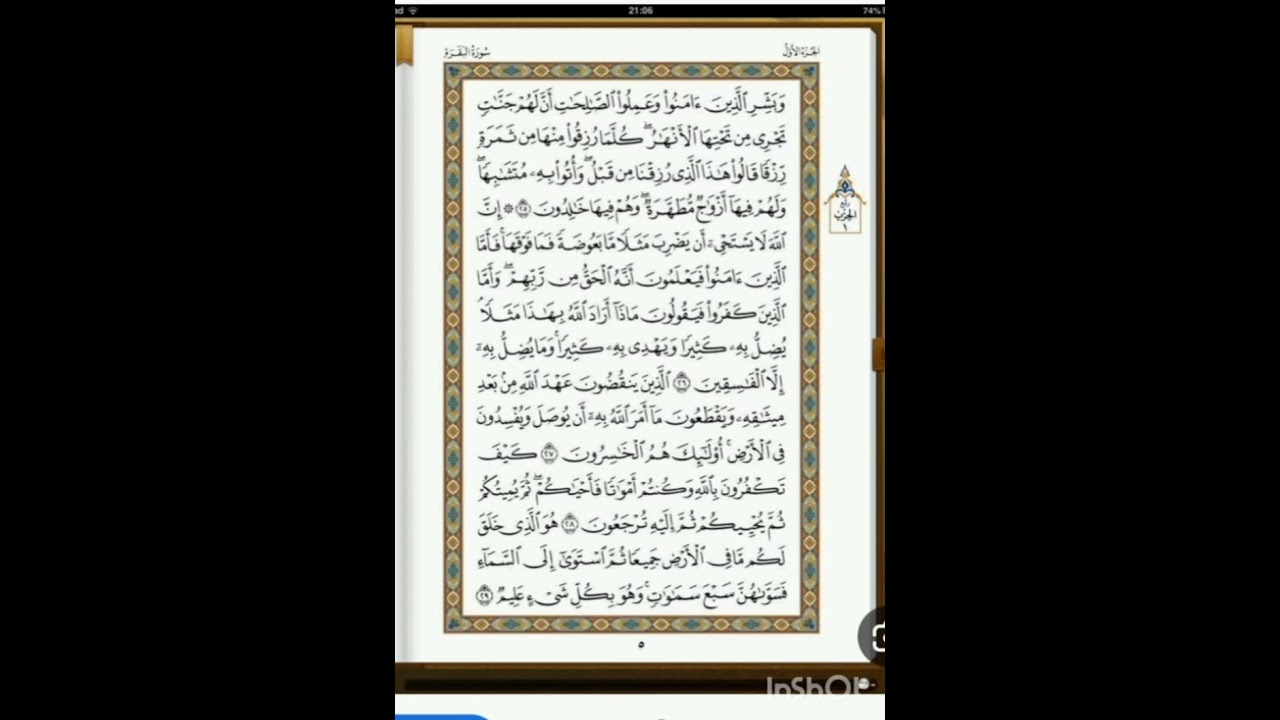 ad 21:06 74%
سُورَةُ البَقَرَةِ الجُزءُ الأَوَّلُ
وَبَشِّرِ ٱلَّذِينَ ءَامَنُوا۟ وَعَمِلُوا۟ ٱلصَّـٰلِحَـٰتِ أَنَّ لَهُمْ جَنَّـٰتٍ
تَجْرِى مِن تَحْتِهَا ٱلْأَنْهَـٰرُ ۖ كُلَّمَا رُزِقُوا۟ مِنْهَا مِن ثَمَرَةٍ
رِّزْقًا قَالُوا۟ هَـٰذَا ٱلَّذِى رُزِقْنَا مِن قَبْلُ ۖ وَأُتُوا۟ بِهِۦ مُتَشَـٰبِهًا ۖ
وَلَهُمْ فِيهَآ أَزْوَٰجٌ مُّطَهَّرَةٌ ۖ وَهُمْ فِيهَا خَـٰلِدُونَ ٢٥ ۞ إِنَّ
ربع الحزب ١
ٱللَّهَ لَا يَسْتَحْىِۦٓ أَن يَضْرِبَ مَثَلًا مَّا بَعُوضَةً فَمَا فَوْقَهَا ۚ فَأَمَّا
ٱلَّذِينَ ءَامَنُوا۟ فَيَعْلَمُونَ أَنَّهُ ٱلْحَقُّ مِن رَّبِّهِمْ ۖ وَأَمَّا
ٱلَّذِينَ كَفَرُوا۟ فَيَقُولُونَ مَاذَآ أَرَادَ ٱللَّهُ بِهَـٰذَا مَثَلًا ۘ
يُضِلُّ بِهِۦ كَثِيرًا وَيَهْدِى بِهِۦ كَثِيرًا ۚ وَمَا يُضِلُّ بِهِۦٓ
إِلَّا ٱلْفَـٰسِقِينَ ٢٦ ٱلَّذِينَ يَنقُضُونَ عَهْدَ ٱللَّهِ مِنۢ بَعْدِ
مِيثَـٰقِهِۦ وَيَقْطَعُونَ مَآ أَمَرَ ٱللَّهُ بِهِۦٓ أَن يُوصَلَ وَيُفْسِدُونَ
فِى ٱلْأَرْضِ ۚ أُو۟لَـٰٓئِكَ هُمُ ٱلْخَـٰسِرُونَ ٢٧ كَيْفَ
تَكْفُرُونَ بِٱللَّهِ وَكُنتُمْ أَمْوَٰتًا فَأَحْيَـٰكُمْ ۖ ثُمَّ يُمِيتُكُمْ
ثُمَّ يُحْيِيكُمْ ثُمَّ إِلَيْهِ تُرْجَعُونَ ٢٨ هُوَ ٱلَّذِى خَلَقَ
لَكُم مَّا فِى ٱلْأَرْضِ جَمِيعًا ثُمَّ ٱسْتَوَىٰٓ إِلَى ٱلسَّمَآءِ
فَسَوَّىٰهُنَّ سَبْعَ سَمَـٰوَٰتٍ ۚ وَهُوَ بِكُلِّ شَىْءٍ عَلِيمٌ ٢٩
٥